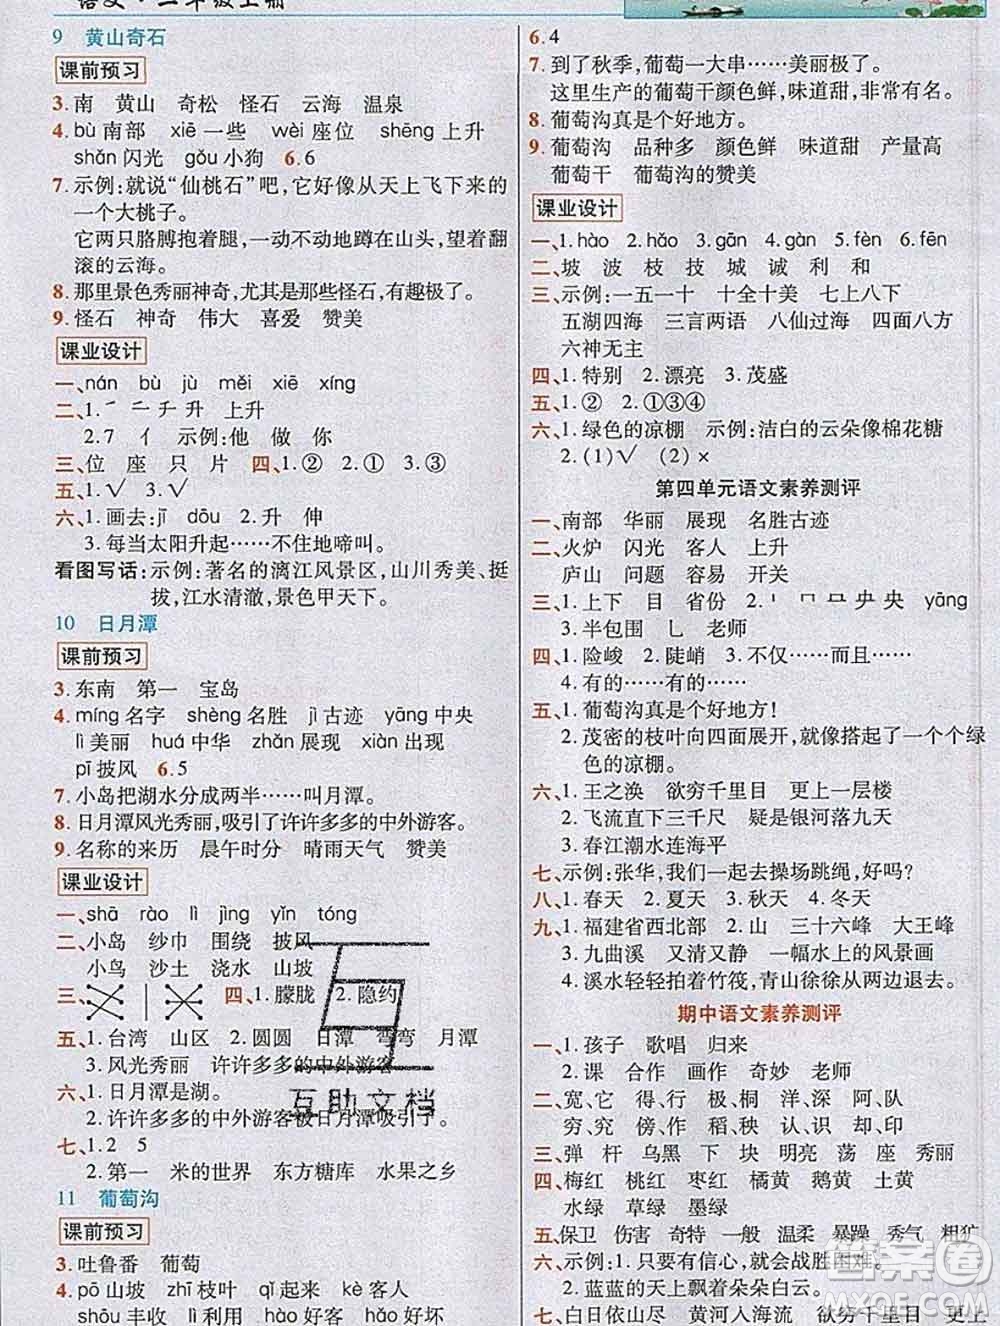 语文·二年级上册
9 黄山奇石
课前预习
3.南 黄山 奇松 怪石 云海 温泉
4.bù南部 xiē一些 wèi座位 shēng上升
shǎn闪光 gǒu小狗 6.6
7.示例:就说“仙桃石”吧,它好像从天上飞下来的
一个大桃子。
它两只胳膊抱着腿,一动不动地蹲在山头,望着翻
滚的云海。
8.那里景色秀丽神奇,尤其是那些怪石,有趣极了。
9.怪石 神奇 伟大 喜爱 赞美
课业设计
一、nán bù jù měi xiē xíng
二、1.㇒ 二 チ 升 上升
2.7 亻 示例:他 做 你
三、位 座 只 片 四、1.② 2.① 3.③
五、1.√ 2.√
六、1.画去:jī dōu 2.升 伸
3.每当太阳升起……不住地啼叫。
看图写话:示例:著名的漓江风景区,山川秀美、挺
拔,江水清澈,景色甲天下。
10 日月潭
课前预习
3.东南 第一 宝岛
4.míng名字 shèng名胜 jì古迹 yāng中央
lì美丽 huá中华 zhǎn展现 xiàn出现
pī披风 6.5
7.小岛把湖水分成两半……叫月潭。
8.日月潭风光秀丽,吸引了许许多多的中外游客。
9.名称的来历 晨午时分 晴雨天气 赞美
课业设计
一、shā rào lì jìng yǐn tóng
二、小岛 纱巾 围绕 披风
小鸟 沙土 浇水 山坡
三、 四、1.朦胧 2.隐约
五、1.台湾 山区 2.圆圆 日潭 弯弯 月潭
3.风光秀丽 许许多多的中外游客
六、1.日月潭是湖。
2.许许多多的中外游客被日月潭吸引了。
七、1.2 5
2.第一 米的世界 东方糖库 水果之乡
11 葡萄沟
课前预习
3.吐鲁番 葡萄
4.pō山坡 zhī枝叶 qǐ起来 kè客人
shōu丰收 lì利用 hào好客 hǎo好坏
6.4
7.到了秋季,葡萄一大串……美丽极了。
这里生产的葡萄干颜色鲜,味道甜,非常有名。
8.葡萄沟真是个好地方。
9.葡萄沟 品种多 颜色鲜 味道甜 产量高
葡萄干 葡萄沟的赞美
课业设计
一、1.hào 2.hǎo 3.gān 4.gàn 5.fèn 6.fēn
二、坡 波 枝 技 城 诚 利 和
三、示例:一五一十 十全十美 七上八下
五湖四海 三言两语 八仙过海 四面八方
六神无主
四、1.特别 2.漂亮 3.茂盛
五、1.② 2.①③④
六、1.绿色的凉棚 示例:洁白的云朵像棉花糖
2.(1)√ (2)×
第四单元语文素养测评
一、南部 华丽 展现 名胜古迹
二、火炉 闪光 客人 上升
庐山 问题 容易 开关
三、1.上下 目 省份 2.丨 冂 口 央 央 yāng
3.半包围 乚 老师
四、1.险峻 2.陡峭 3.不仅……而且……
4.有的……有的……
五、1.葡萄沟真是个好地方!
2.茂密的枝叶向四面展开,就像搭起了一个个绿
色的凉棚。
六、1.王之涣 欲穷千里目 更上一层楼
2.飞流直下三千尺 疑是银河落九天
3.春江潮水连海平
七、示例:张华,我们一起去操场跳绳,好吗?
八、1.春天 2.夏天 3.秋天 4.冬天
九、1.福建省西北部 2.山 三十六峰 大王峰
3.九曲溪 又清又静 一幅水上的风景画
4.溪水轻轻拍着竹筏,青山徐徐从两边退去。
期中语文素养测评
一、1.孩子 歌唱 归来
2.课 合作 画作 奇妙 老师
二、宽、它 得、行 梅、桃 深、江 阿、队
穷、究 傍、作 稻、秧 认、识 却、印
三、弹 杆 乌黑 下坡 坚定 荡 座 秀丽
四、梅红 桃红 枣红 橘黄 鹅黄 土黄
水绿 草绿 墨绿
五、保卫 伤害 奇特 一般 温柔 暴躁 秀气 粗犷
六、示例:1.只要有信心,就会战胜困难。
2.蓝蓝的天上飘着朵朵白云。
七、白日依山尽 黄河入海流 欲穷千里目 更上
互助文档
答案圈